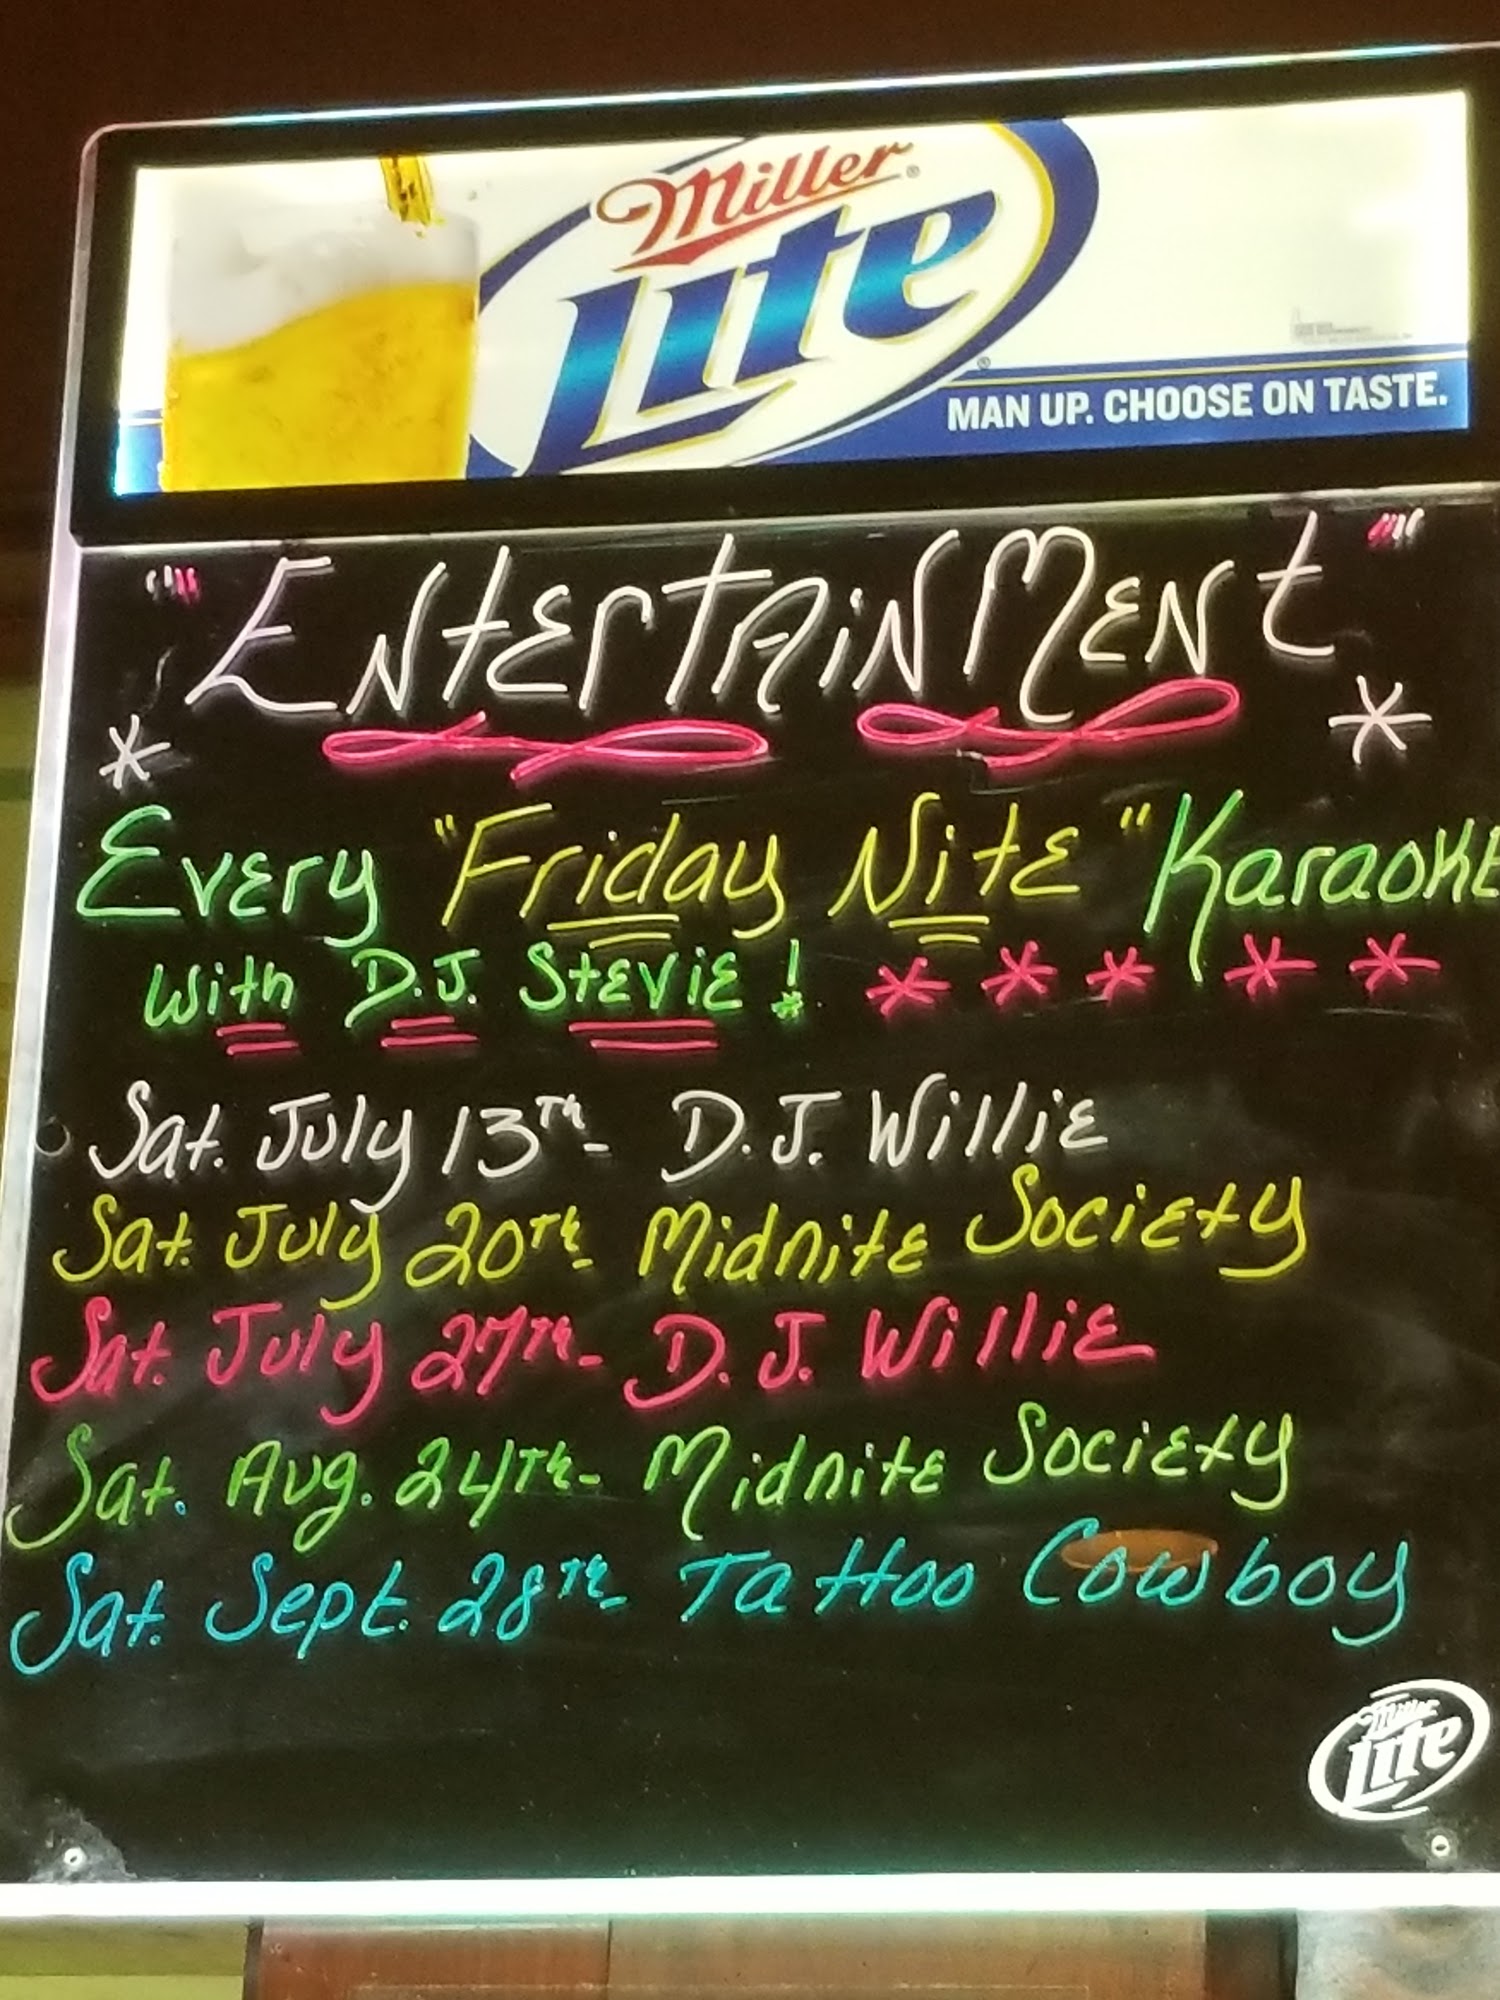 Miller
Lite
MAN UP. CHOOSE ON TASTE.
"ENtErtAiNMENt"
* *
EvEry "Friday NitE" KaraokE
With D.J. StEviE! * * * * *
Sat. July 13TH- D.J. WilliE
Sat. July 20TH- MidnitE SociEty
Sat. July 27TH- D.J. WilliE
Sat. Aug. 24TH- MidnitE SociEty
Sat. Sept. 28TH- Tattoo Cowboy
Miller
Lite